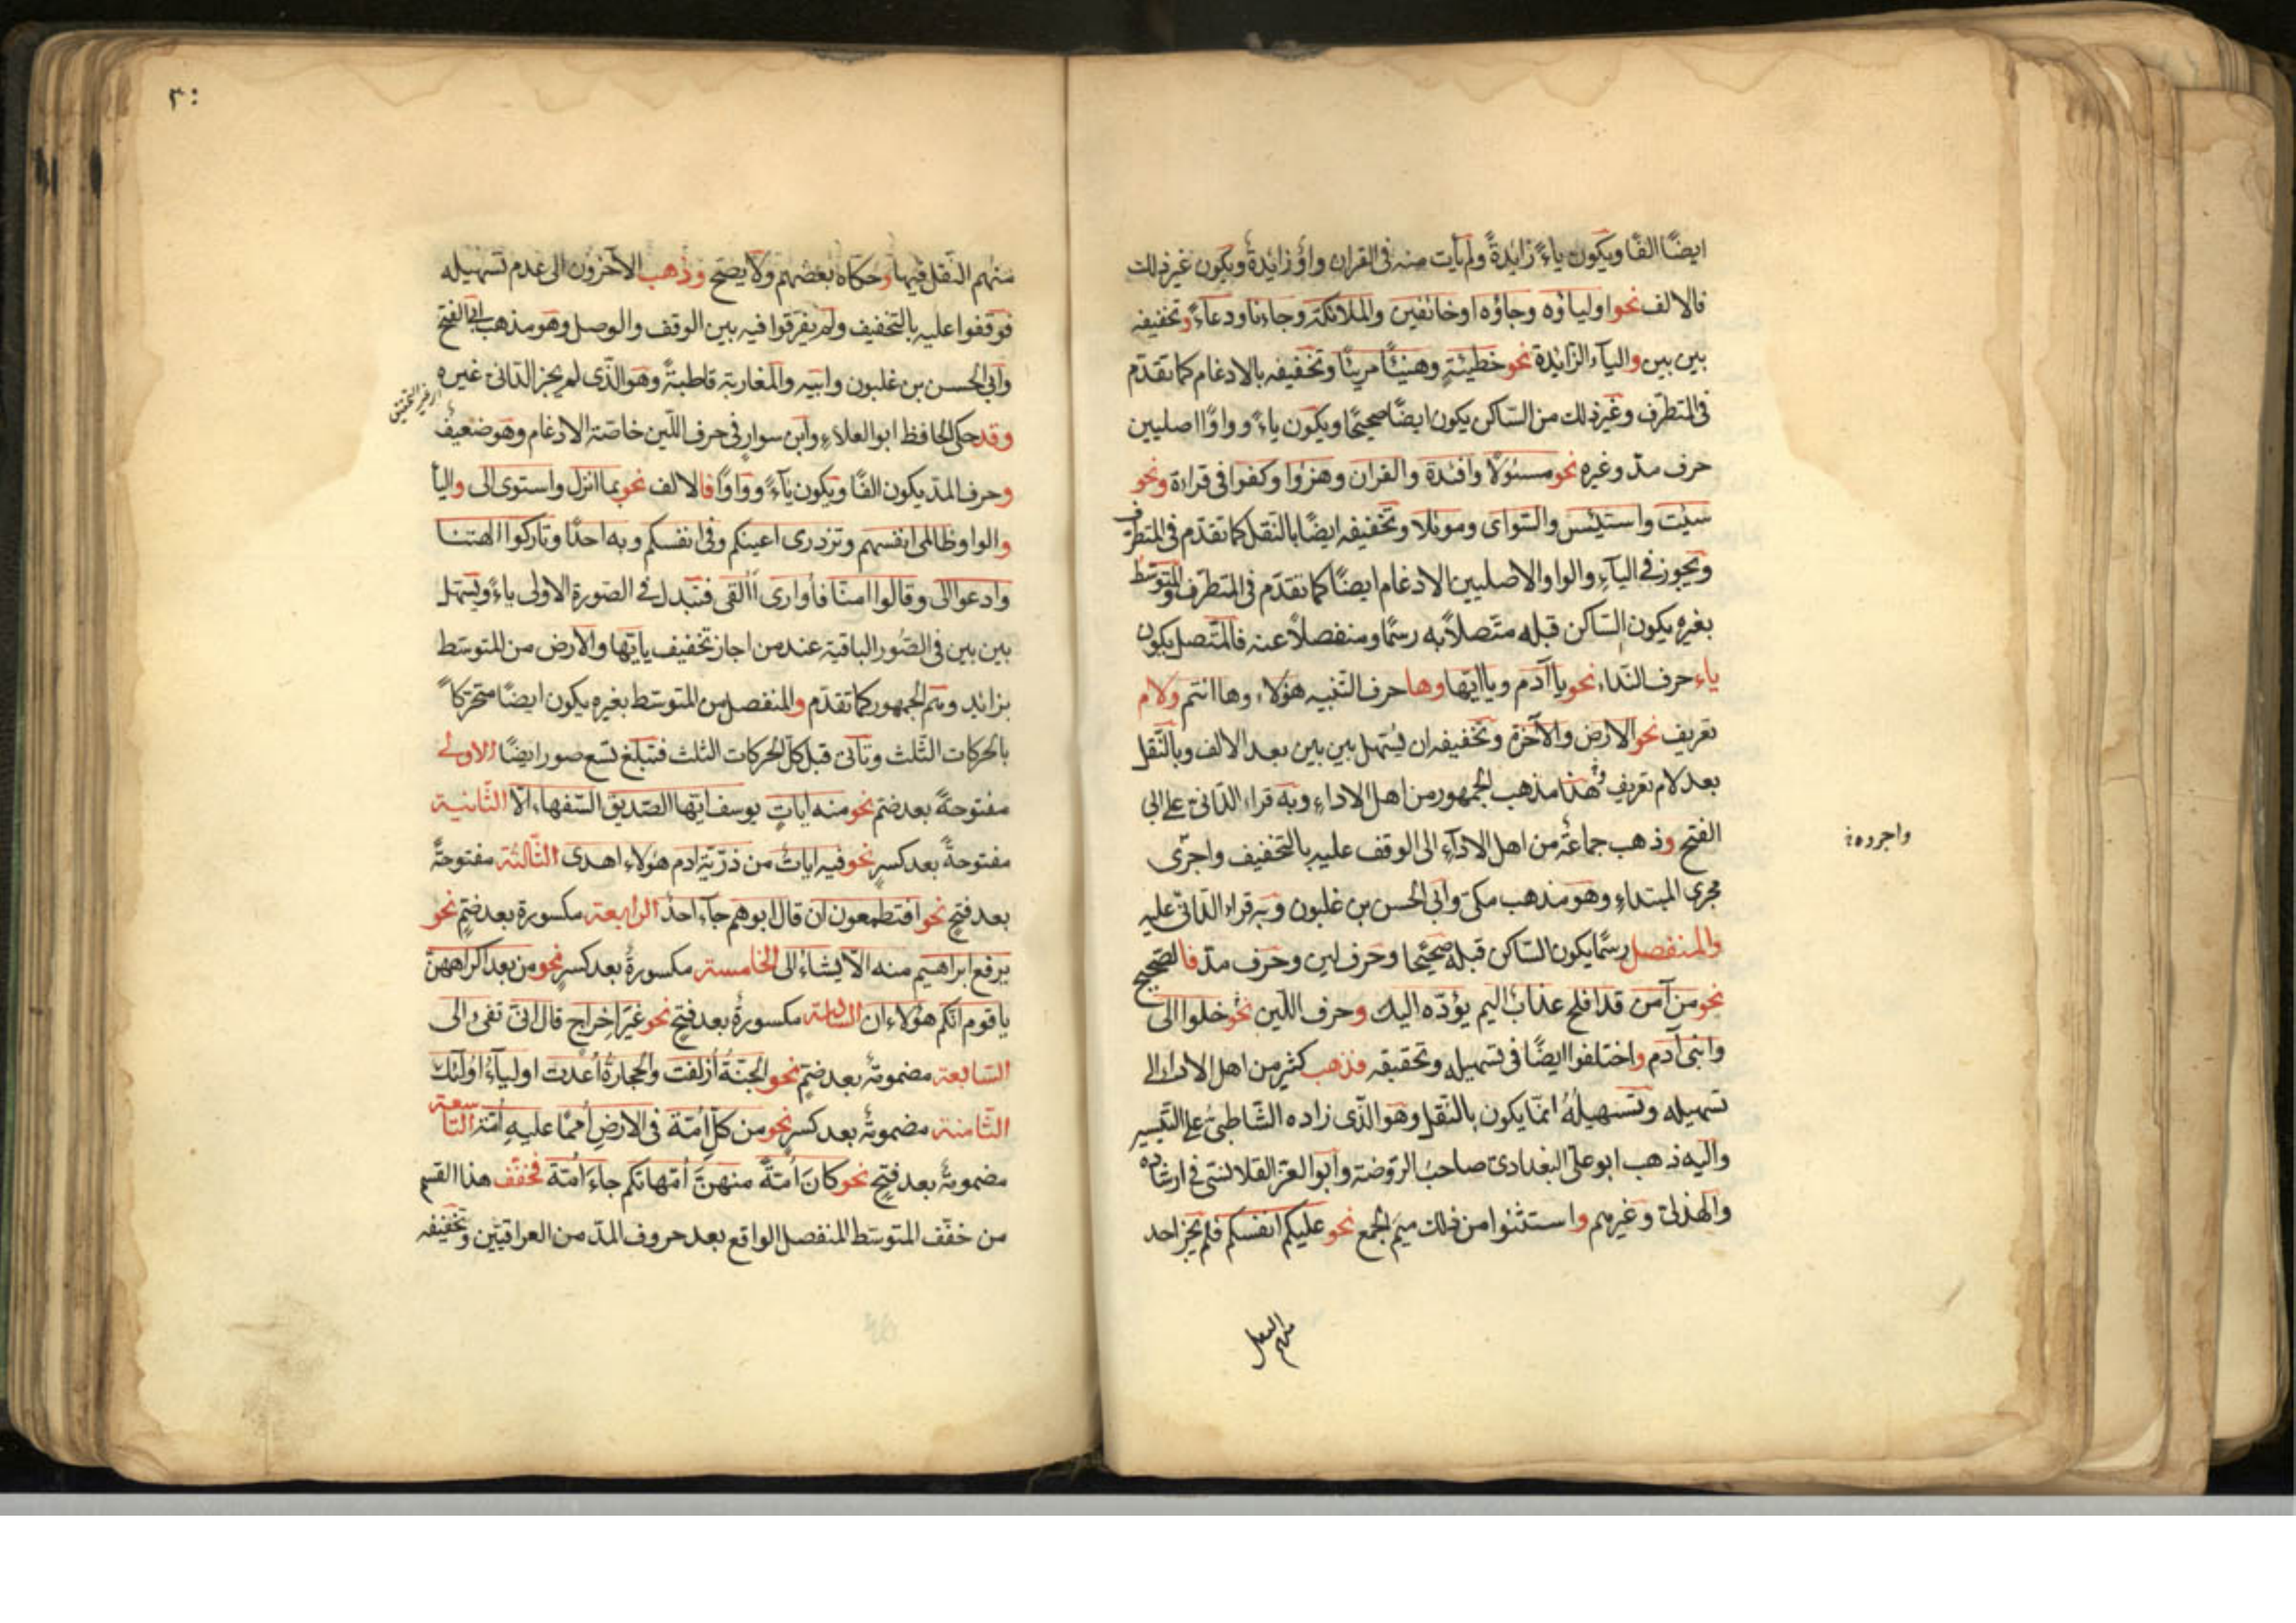 ايضًا الفًا ويكون ياءً زائدةً ولم يأت منه فى القران واوٌ زائدةٌ ويكون غير ذلك
فالالف نحو اولياؤه وجاؤه اوخائفين والملائكة وجاءنا ودعاءً وتخفيفه
بين بين والياء الزائدة نحو خطيئةٍ وهنيئًا مريئًا وتخفيفه بالادغام كما تقدّم
فى المتطرّف وغير ذلك من السّاكن يكون ايضًا صحيحًا ويكون ياءً وواوًا اصليين
حرف مدّ وغيره نحو مسئولًا وافئدة والقران وهزؤا وكفوا فى قراءة ونحو
سيئت واستيئس والسّوأى وموئلا وتخفيفه ايضًا بالنّقل كما تقدّم فى المتطرّف
ويجوز فى الياء والواو الاصليين الادغام ايضًا كما تقدّم فى المتطرّف والمتوسّط
بغيره يكون السّاكن قبله متّصلًا به رسمًا ومنفصلًا عنه فالمتّصل يكون
ياء حرف النّداء نحو يا آدم ويا ايّها وها حرف التّنبيه هؤلاء وها انتم ولام
تعريف نحو الارض والآخرة وتخفيفه ان يسّهل بين بين بعد الالف وبالنّقل
بعد لام تعريف هذا مذهب الجمهور من اهل الاداء وبه قراء الدّانى على ابى
الفتح وذهب جماعةٌ من اهل الاداء الى الوقف عليه بالتّخفيف واجرى
واجروه
مجرى المبتداء وهو مذهب مكى وابى الحسن بن غلبون وبه قراء الدّانى عليه
والمنفصل رسمًا يكون السّاكن قبله صحيحًا وحرف لين وحرف مدّ فالصّحيح
نحو من آمن قد افلح عذابٌ اليم يؤدّه اليك وحرف اللّين نحو خلوا الى
وابنى آدم واختلفوا ايضًا فى تسهيله وتحقيقه فذهب كثير من اهل الاداء الى
تسهيله وتسهيلهُ انمّا يكون بالنّقل وهو الذّى زاده الشّاطبىّ على التّيسير
واليه ذهب ابو علىّ البغدادىّ صاحبُ الرّوضة وابو العزّ القلانسىّ فى ارشاده
والهذلىّ وغيرهم واستثنوا من ذلك ميم الجمع نحو عليكم انفسكم فلم يجز احد
منهم النقل
٣٠
منهم النّقل فيها وحكاه بعضهم ولا يصحّ وذهب الآخرون الى عدم تسهيله
فوقفوا عليه بالتّخفيف ولم يفرّقوا فيه بين الوقف والوصل وهو مذهب ابى الفتح
وابى الحسن بن غلبون وابيه والمغاربة قاطبةً وهو الذّى لم يجز الدّانى غيره
وقد حكى الحافظ ابو العلاء وابن سوار فى حرف اللّين خاصّة الادغام وهو ضعيف
وحرف المدّ يكون الفًا ويكون ياءً وواوًا فالالف نحو بما انزل واستوى الى واليا
والواو ظالمى انفسهم وتزدرى اعينكم وفى انفسكم وبه احدًا وتاركوا الهتنا
وادعوا الى وقالوا امنّا فأوارى أألقى فتبدل فى الصّورة الاولى ياءً ويسّهل
بين بين فى الصّور الباقية عند من اجاز تخفيف يا ايّها والارض من المتوسّط
بزائد وهم الجمهور كما تقدّم والمنفصل من المتوسّط بغيره يكون ايضًا متحركاً
بالحركات الثّلث وتأتى قبل كلّ الحركات الثلث فتبلغ تسع صور ايضًا الاولى
مفتوحةٌ بعد ضمّ نحو منه اياتٌ يوسف ايّها الصّدّيق السّفهاء الا الثّانية
مفتوحةٌ بعد كسرٍ نحو فيه اياتٌ من ذرّيّة ادم هؤلاء اهدى الثّالثة مفتوحةٌ
بعد فتحٍ نحو افتطمعون ان قال ابوهم جاء احدٌ الرابعة مكسورة بعد ضمٍّ نحو
يرفع ابراهيم منه الا يشاءُ الى الخامسة مكسورةٌ بعد كسرٍ نحو من بعد اكراههنّ
يا قوم انّكم هؤلاءِ ان السّادسة مكسورةٌ بعد فتحٍ نحو غيرَ اِخراج قال انّى تفئ الى
السّابعة مضمومةٌ بعد ضمٍّ نحو الجنّةُ اُزلفت والحجارةُ اُعدّت اولياءُ اُولئك
الثّامنة مضمومةٌ بعد كسرٍ نحو من كلّ اُمّة فى الارضِ اُممًا عليهِ اُمّة التّاسعة
مضمومةٌ بعد فتحٍ نحو كانَ اُمّةً منهنّ اُمّهاتكم جاءَ اُمّة فخفّف هذا القسم
من خفّف المتوسّط المنفصل الواقع بعد حروف المدّ من العراقيّين وتخفيفه